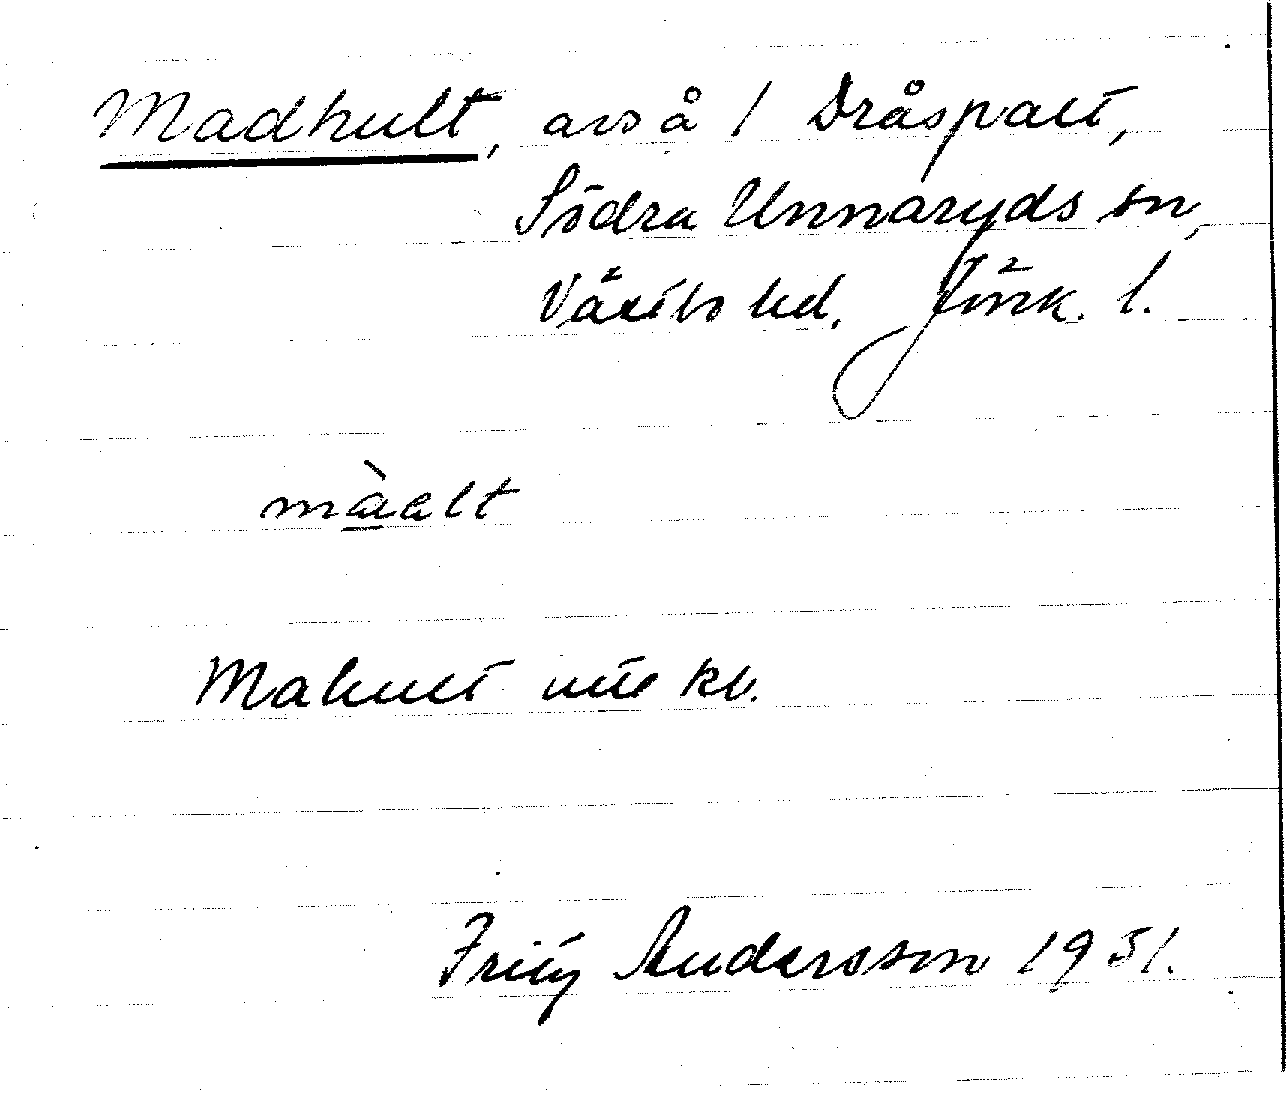 Madhult, avs å 1 Dråspalt,
Södra Unnaryds sn,
Västbo hd. Jönk. l.
màalt
Mahult utt kb.
Fritz Andersson 1931.